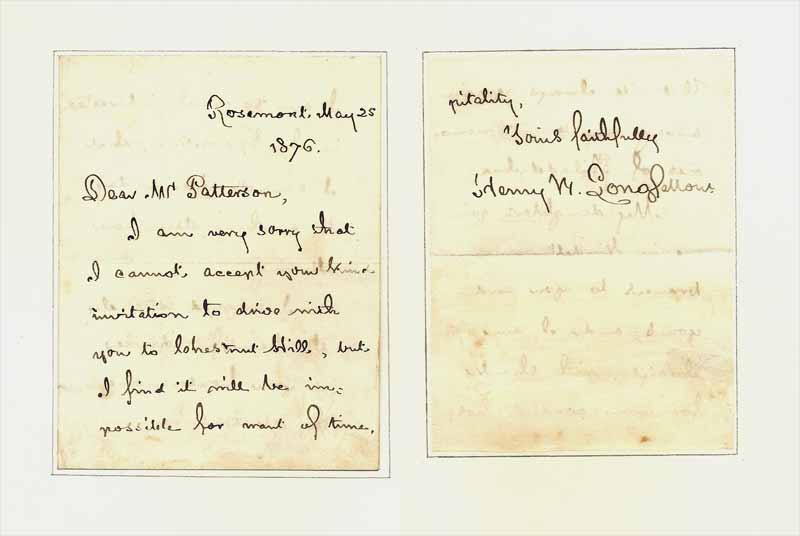 Rosemont, May 25
1876.
Dear Mr Patterson,
I am very sorry that
I cannot accept your kind
invitation to drive with
you to Chestnut Hill, but
I find it will be im=
possible for want of time.
pitality,
Yours faithfully
Henry W. Longfellow.